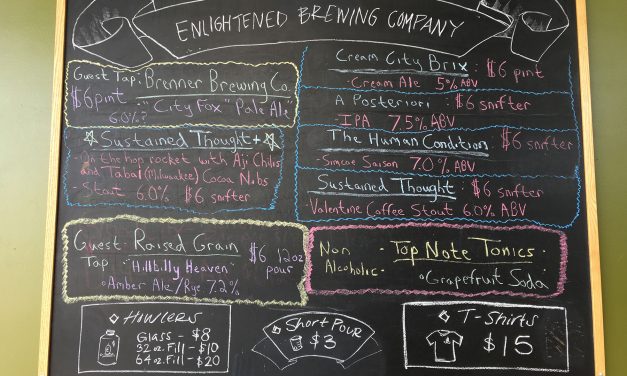 ENLIGHTENED BREWING COMPANY
Guest Tap: Brenner Brewing Co.
$6 pint - "City Fox" Pale Ale
6.0%?
Sustained Thought +
- On the non rocket with Aji Chilis
and Tabal (Milwaukee) Cocoa Nibs
- Stout 6.0% $6 snifter
Guest Tap: Raised Grain
"Hillbilly Heaven"
Amber Ale/Rye 7.2%
$6 12oz
pour
Cream City Brix: $6 pint
- Cream Ale 5% ABV
A Posteriori: $6 snifter
- IPA 7.5% ABV
The Human Condition: $6 snifter
- Simcoe Saison 7.0% ABV
Sustained Thought: $6 snifter
Valentine Coffee Stout 6.0% ABV
Non Alcoholic - Top Note Tonics
Grapefruit Soda
Howlers
Glass - $8
32 oz. Fill - $10
64 oz. Fill - $20
Short Pour
$3
T-Shirts
$15